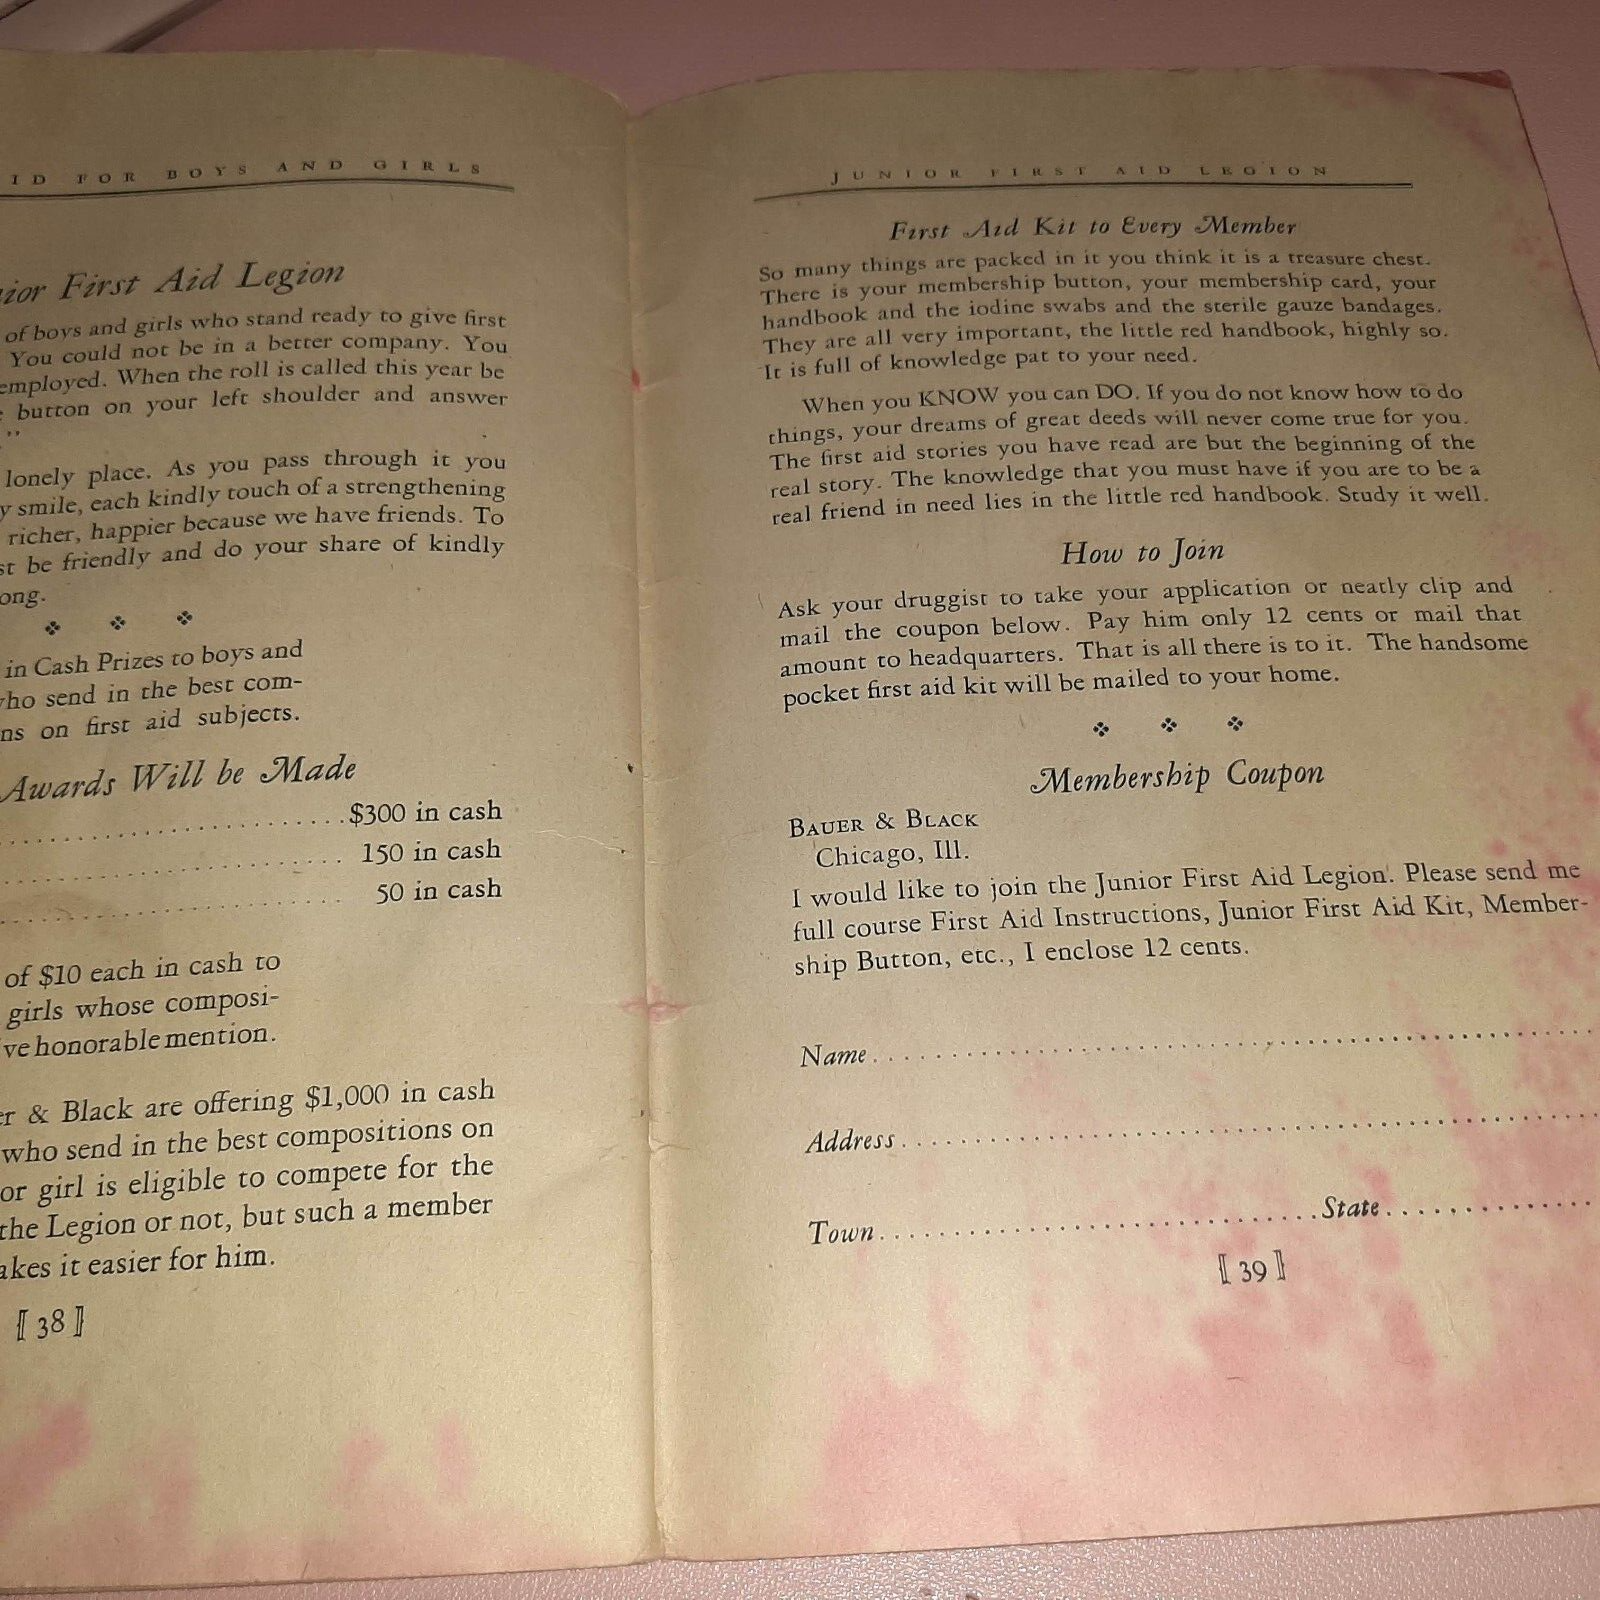 ID FOR BOYS AND GIRLS
First Aid Legion
of boys and girls who stand ready to give first
You could not be in a better company. You
employed. When the roll is called this year be
button on your left shoulder and answer
."
lonely place. As you pass through it you
smile, each kindly touch of a strengthening
richer, happier because we have friends. To
be friendly and do your share of kindly
ong.
in Cash Prizes to boys and
who send in the best com-
ns on first aid subjects.
Awards Will be Made
$300 in cash
150 in cash
50 in cash
of $10 each in cash to
girls whose composi-
ve honorable mention.
er & Black are offering $1,000 in cash
who send in the best compositions on
or girl is eligible to compete for the
the Legion or not, but such a member
akes it easier for him.
[38]
JUNIOR FIRST AID LEGION
First Aid Kit to Every Member
So many things are packed in it you think it is a treasure chest.
There is your membership button, your membership card, your
handbook and the iodine swabs and the sterile gauze bandages.
They are all very important, the little red handbook, highly so.
It is full of knowledge pat to your need.
When you KNOW you can DO. If you do not know how to do
things, your dreams of great deeds will never come true for you.
The first aid stories you have read are but the beginning of the
real story. The knowledge that you must have if you are to be a
real friend in need lies in the little red handbook. Study it well.
How to Join
Ask your druggist to take your application or neatly clip and
mail the coupon below. Pay him only 12 cents or mail that
amount to headquarters. That is all there is to it. The handsome
pocket first aid kit will be mailed to your home.
Membership Coupon
BAUER & BLACK
Chicago, Ill.
I would like to join the Junior First Aid Legion. Please send me
full course First Aid Instructions, Junior First Aid Kit, Member-
ship Button, etc., I enclose 12 cents.
Name
Address
Town State
[39]